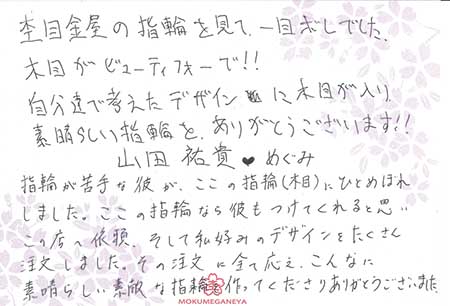 杢目金屋の指輪を見て、一目ボレでした。
木目がビューティフォーで!!
自分達で考えたデザインに木目が入り
素晴らしい指輪を、ありがとうございます!!
山田 祐貴 ♥ めぐみ
指輪が苦手な彼が、ここの指輪(木目)にひとめぼれ
しました。ここの指輪なら彼もつけてくれると思い
この店へ依頼、そして私好みのデザインをたくさん
注文しました。その注文に全て応え、こんなに
素晴らしい素敵な指輪を作ってくださりありがとうございました
MOKUMEGANEYA